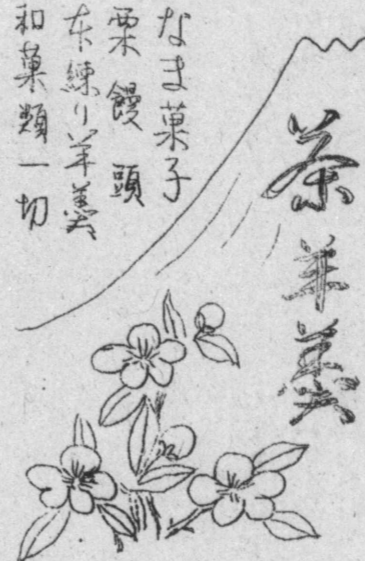 茶羊羹
なま菓子
栗饅頭
本練り羊羹
和菓類一切